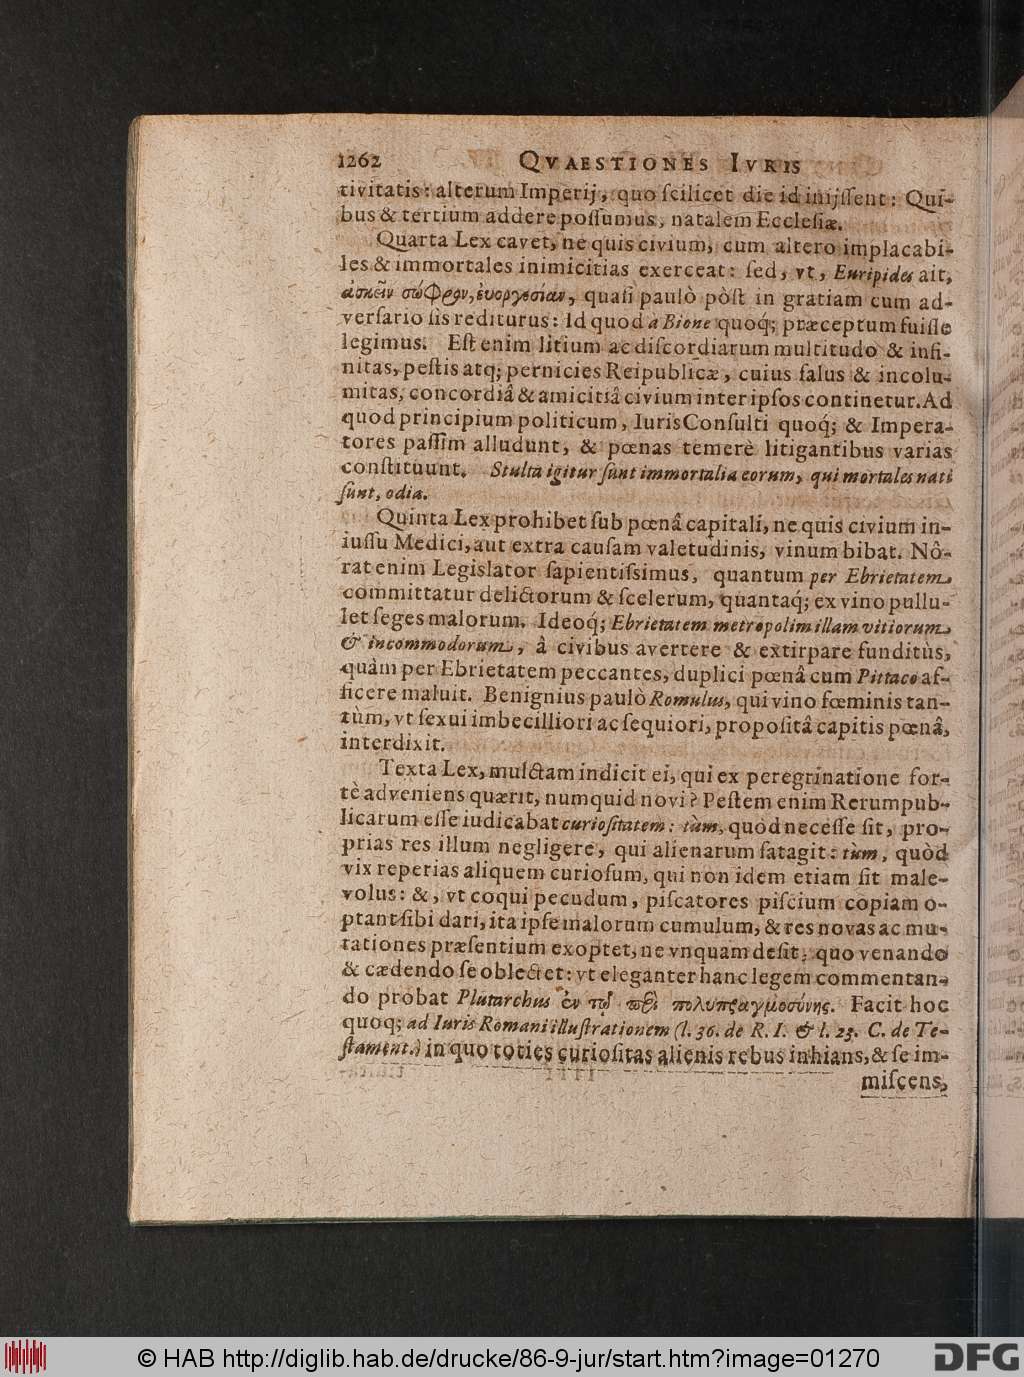 1262 QVAESTIONES IVRIS
tivitatis: alterum Imperij, quo ſcilicet die id inijſſent: Qui-
bus & tertium addere poſſumus, natalem Eccleſiæ.
Quarta Lex cavet, ne quis civium, cum altero implacabi-
les & immortales inimicitias exerceat: ſed, vt, Euripides ait,
ἀσκεῖν quaſi paulò pòſt in gratiam cum ad-
verſario ſis rediturus: Id quod à Bione quoq́; præceptum fuiſſe
legimus. Eſt enim litium ac diſcordiarum multitudo & infi-
nitas, peſtis atq; pernicies Reipublicæ, cuius ſalus & incolu-
mitas, concordiâ & amicitiâ civium inter ipſos continetur. Ad
quod principium politicum, IurisConſulti quoq́; & Impera-
tores paſſim alludunt, & pœnas temerè litigantibus varias
conſtituunt. Stulta igitur ſunt immortalia eorum, qui mortales nati
ſunt, odia.
Quinta Lex prohibet ſub pœnâ capitali, ne quis civium in-
iuſſu Medici, aut extra cauſam valetudinis, vinum bibat. Nô-
rat enim Legislator ſapientiſsimus, quantum per Ebrietatem
committatur delictorum & ſcelerum, quantaq́; ex vino pullu-
let ſeges malorum. Ideoq́; Ebrietatem metropolim illam vitiorum
& incommodorum, à civibus avertere & extirpare funditùs,
quàm per Ebrietatem peccantes, duplici pœnâ cum Pittaco af-
ficere maluit. Benignius paulò Romulus, qui vino fœminis tan-
tùm, vt ſexui imbecilliori ac ſequiori, propoſitâ capitis pœnâ,
interdixit.
Texta Lex, mulctam indicit ei, qui ex peregrinatione for-
tè adveniens quærit, numquid novi? Peſtem enim Rerumpub-
licarum eſſe iudicabat curioſitatem: tùm, quòd neceſſe ſit, pro-
prias res illum negligere, qui alienarum ſatagit: tùm, quòd
vix reperias aliquem curioſum, qui non idem etiam ſit male-
volus: &, vt coqui pecudum, piſcatores piſcium copiam o-
ptant ſibi dari, ita ipſe malorum cumulum, & res novas ac mu-
tationes præſentium exoptet, ne vnquam deſit, quo venando
& cædendo ſe oblectet: vt eleganter hanc legem commentan-
do probat Plutarchus ἐν τῷ περὶ πολυπραγμοσύνης. Facit hoc
quoq; ad Iuris Romani illuſtrationem (l. 36. de R. I. & l. 23. C. de Te-
ſtament.) in quo toties curioſitas alienis rebus inhians, & ſe im-
miſcens,
© HAB http://diglib.hab.de/drucke/86-9-jur/start.htm?image=01270
DFG